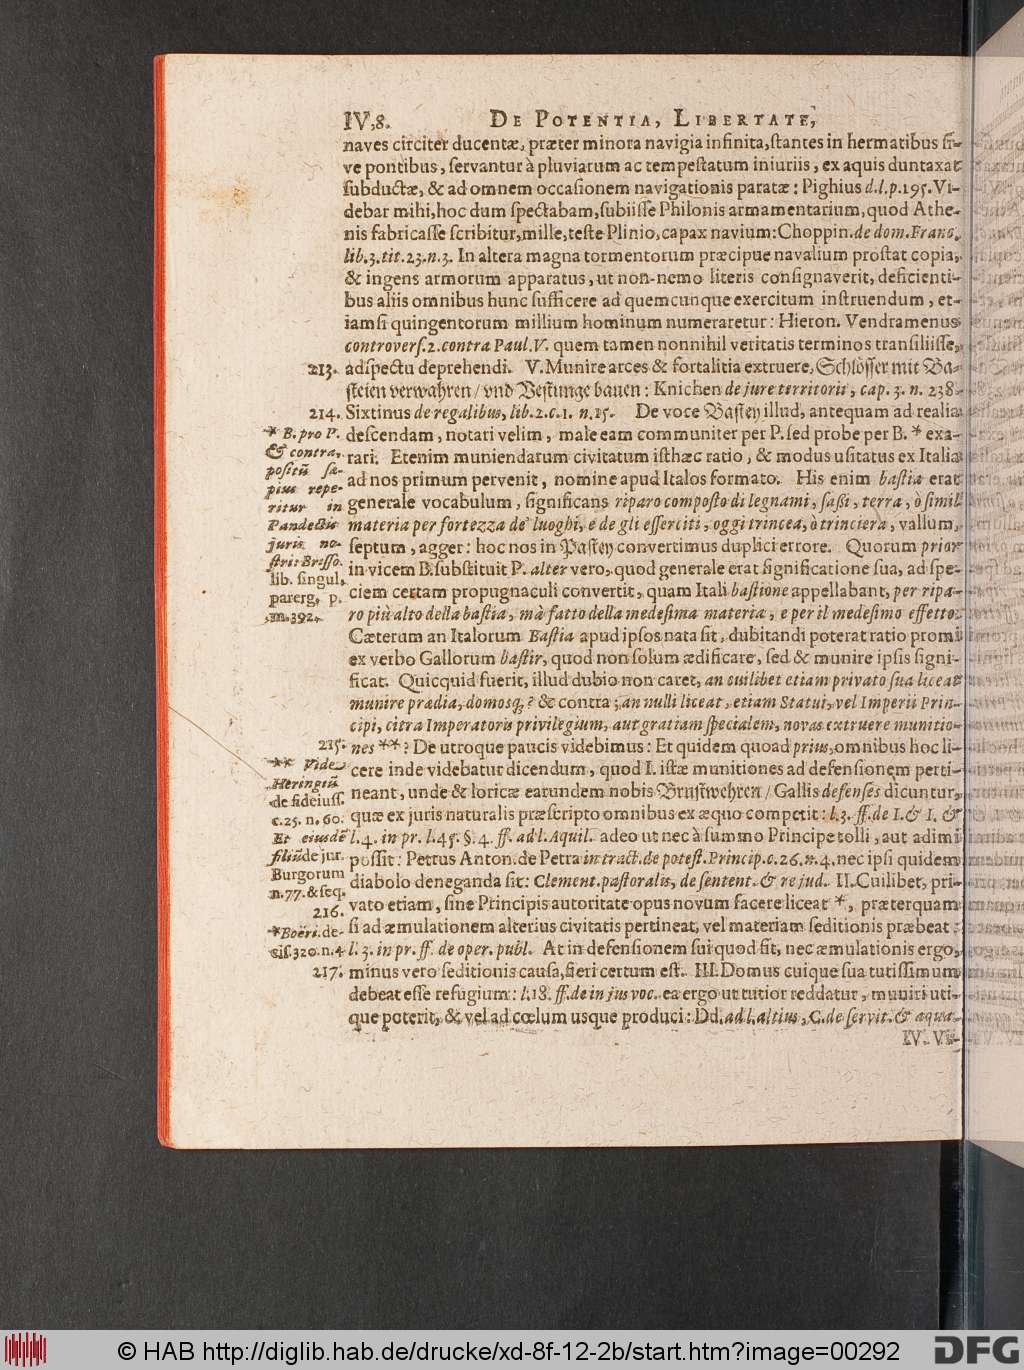 IV,8. DE POTENTIA, LIBERTATE,
naves circiter ducentæ, præter minora navigia infinita, stantes in hermatibus si-
ve pontibus, servantur à pluviarum ac tempestatum iniuriis, ex aquis duntaxat
subductæ, & ad omnem occasionem navigationis paratæ: Pighius d.l.p.195. Vi-
debar mihi, hoc dum spectabam, subiisse Philonis armamentarium, quod Athe-
nis fabricasse scribitur, mille, teste Plinio, capax navium: Choppin. de dom. Franc.
lib.3.tit.23.n.3. In altera magna tormentorum præcipue navalium prostat copia,
& ingens armorum apparatus, ut non-nemo literis consignaverit, deficienti-
bus aliis omnibus hunc sufficere ad quemcunque exercitum instruendum, et-
iamsi quingentorum millium hominum numeraretur: Hieron. Vendramenus
controvers.2.contra Paul.V. quem tamen nonnihil veritatis terminos transiliisse,
213. adspectu deprehendi. V. Munire arces & fortalitia extruere, Schlösser mit Ba-
steien verwahren / vnd Vestunge bauen: Knichen de jure territorii, cap. 3. n. 238.
214. Sixtinus de regalibus, lib.2.c.1. n.15. De voce Bastey illud, antequam ad realia
descendam, notari velim, male eam communiter per P. sed probe per B. * exa-
rari. Etenim muniendarum civitatum isthæc ratio, & modus usitatus ex Italia
ad nos primum pervenit, nomine apud Italos formato. His enim bastia erat
generale vocabulum, significans riparo composto di legnami, sassi, terra, ò simil
materia per fortezza de' luoghi, e de gli esserciti, oggi trincea, ò trinciera, vallum,
septum, agger: hoc nos in Pastey convertimus duplici errore. Quorum prior
in vicem B. substituit P. alter vero, quod generale erat significatione sua, ad spe-
ciem certam propugnaculi convertit, quam Itali bastione appellabant, per ripa-
ro più alto della bastia, mà fatto della medesima materia, e per il medesimo effetto.
Cæterum an Italorum Bastia apud ipsos nata sit, dubitandi poterat ratio promi
ex verbo Gallorum bastir, quod non solum ædificare, sed & munire ipsis signi-
ficat. Quicquid fuerit, illud dubio non caret, an cuilibet etiam privato sua liceat
munire prædia, domosq;? & contra; an nulli liceat, etiam Statui, vel Imperii Prin-
cipi, citra Imperatoris privilegium, aut gratiam specialem, novas extruere munitio-
215. nes **? De utroque paucis videbimus: Et quidem quoad prius, omnibus hoc li-
cere inde videbatur dicendum, quod I. istæ munitiones ad defensionem perti-
neant, unde & loricæ earundem nobis Brustwehren / Gallis defenses dicuntur,
quæ ex juris naturalis præscripto omnibus ex æquo competit: l.3. ff. de I. & I. &
l.4. in pr. l.45. §.4. ff. ad l. Aquil. adeo ut nec à summo Principe tolli, aut adimi
possit: Petrus Anton. de Petra in tract. de potest. Princip. c.26. n.4. nec ipsi quidem
diabolo deneganda sit: Clement. pastoralis, de sentent. & re jud. II. Cuilibet, pri-
vato etiam, sine Principis autoritate opus novum facere liceat *, præterquam
216. si ad æmulationem alterius civitatis pertineat, vel materiam seditionis præbeat:
l. 3. in pr. ff. de oper. publ. At in defensionem sui quod fit, nec æmulationis ergo,
217. minus vero seditionis causa, fieri certum est. III. Domus cuique sua tutissimum
debeat esse refugium: l.18. ff. de in jus voc. ea ergo ut tutior reddatur, muniri uti-
que poterit, & vel ad cœlum usque produci: Dd. ad l. altius, C. de servit. & aqua.
IV. Vi-
* B. pro P.
& contra,
positũ sæ-
pius repe-
ritur in
Pandectis
juris no-
stri: Brisso.
lib. singul.
parerg. p.
m.392.
** Vide
Heringiũ
de fideiuss.
c.25. n.60.
Et eiusdẽ
filiũ de jur.
Burgorum
n.77. & seq.
* Boëri. de-
cis. 320. n.4
© HAB http://diglib.hab.de/drucke/xd-8f-12-2b/start.htm?image=00292
DFG